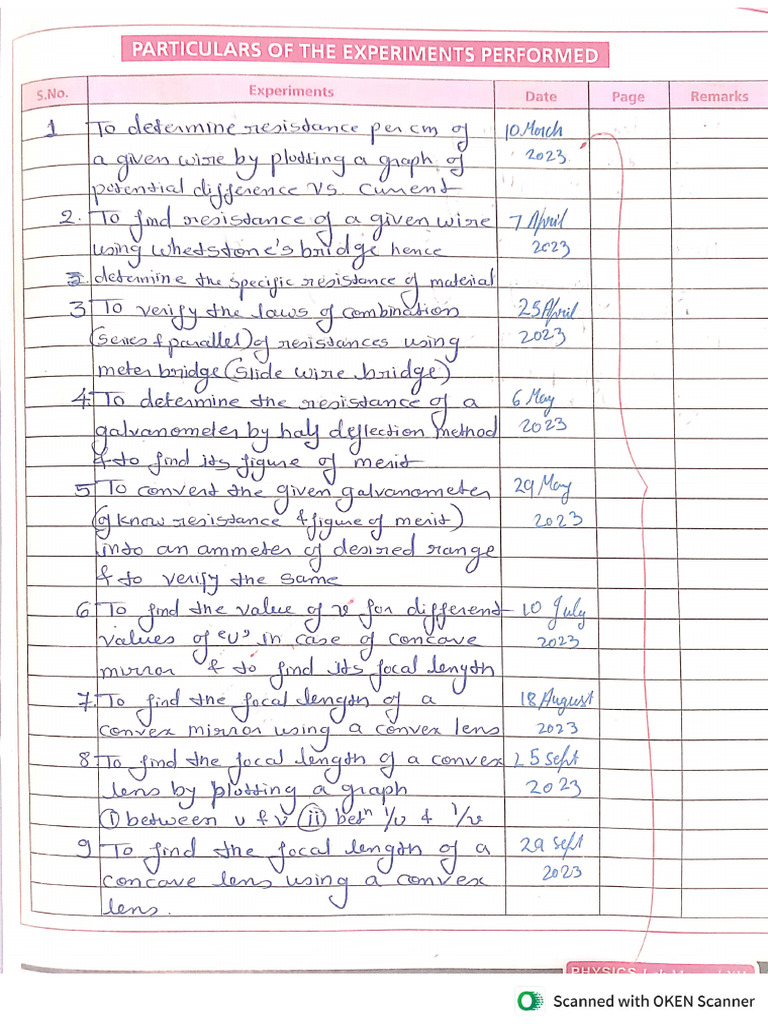 PARTICULARS OF THE EXPERIMENTS PERFORMED
S.No. Experiments Date Page Remarks
1 To determine resistance per cm of 10 March
a given wire by plotting a graph of 2023
potential difference Vs. Current
2. To find resistance of a given wire 7 April
using whetstone's bridge hence 2023
determine the specific resistance of material
3 To verify the laws of combination 25 April
(series & parallel) of resistances using 2023
meter bridge (slide wire bridge)
4. To determine the resistance of a 6 May
galvanometer by half deflection method 2023
& to find its figure of merit
5 To convert the given galvanometer 29 May
(of know resistance & figure of merit) 2023
into an ammeter of desired range
& to verify the same
6 To find the value of v for different 10 July
values of "U" in case of concave 2023
mirror & to find its focal length
7. To find the focal length of a 18 August
convex mirror using a convex lens 2023
8 To find the focal length of a convex 25 sept
lens by plotting a graph 2023
(i) between u & v (ii) betn 1/u & 1/v
9 To find the focal length of a 29 sept
concave lens using a convex 2023
lens.
PHYSICS
Scanned with OKEN Scanner